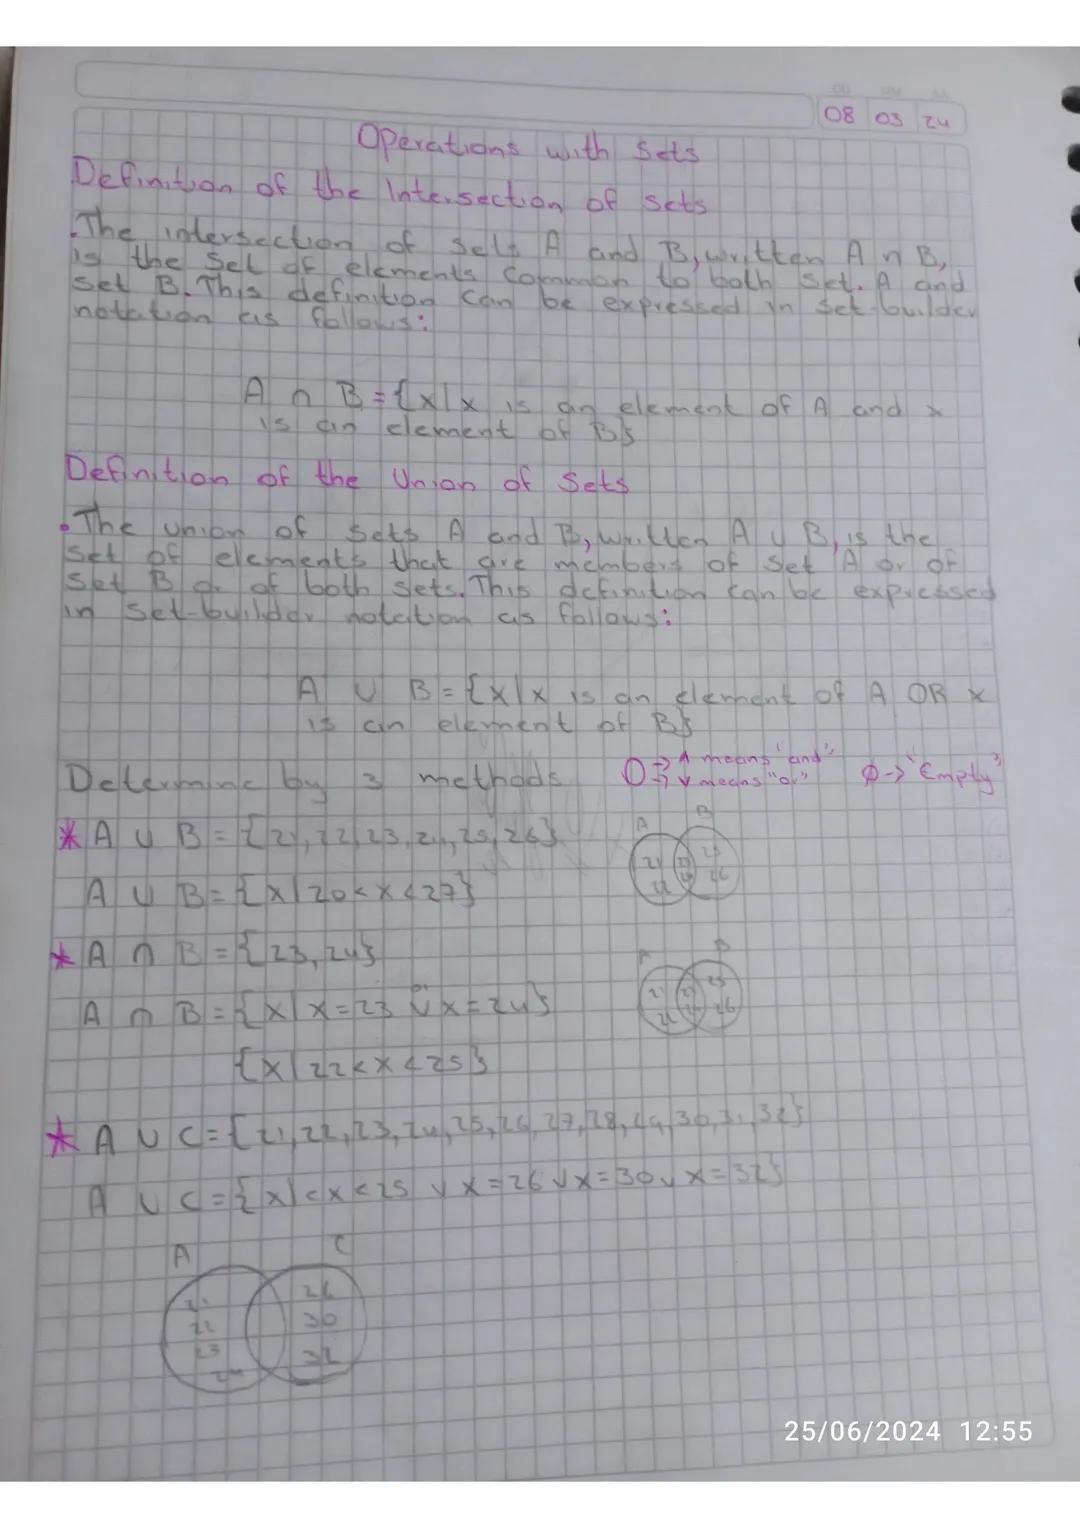 DD MM AA
08 03 24
Operations with Sets
Definition of the Intersection of sets
. The intersection of sets A and B, written A ∩ B,
is the set of elements common to both set. A and
set B. This definition can be expressed in set-builder
notation as follows:
A ∩ B = {x|x is an element of A and x
is an element of B}
Definition of the Union of Sets
• The union of sets A and B, written A ∪ B, is the
set of elements that are members of set A or of
set B or of both sets. This definition can be expressed
in set-builder notation as follows:
A ∪ B = {x|x is an element of A OR x
is an element of B}
Determine by 3 methods
∧ means "and"
∨ means "or"
∅ -> "Empty"
* A ∪ B = {21, 22, 23, 24, 25, 26}
A B
21 23 25
22 24 26
A ∪ B = {x| 20 < x < 27}
* A ∩ B = {23, 24}
A B
21 23 25
22 24 26
A ∩ B = {x| x = 23 ∨ x = 24}
{x| 22 < x < 25}
* A ∪ C = {21, 22, 23, 24, 25, 26, 27, 28, 29, 30, 31, 32}
A ∪ C = {x| < x < 25 ∨ x = 26 ∨ x = 30 ∨ x = 32}
A C
21 26
22 30
23 32
24
25/06/2024 12:55